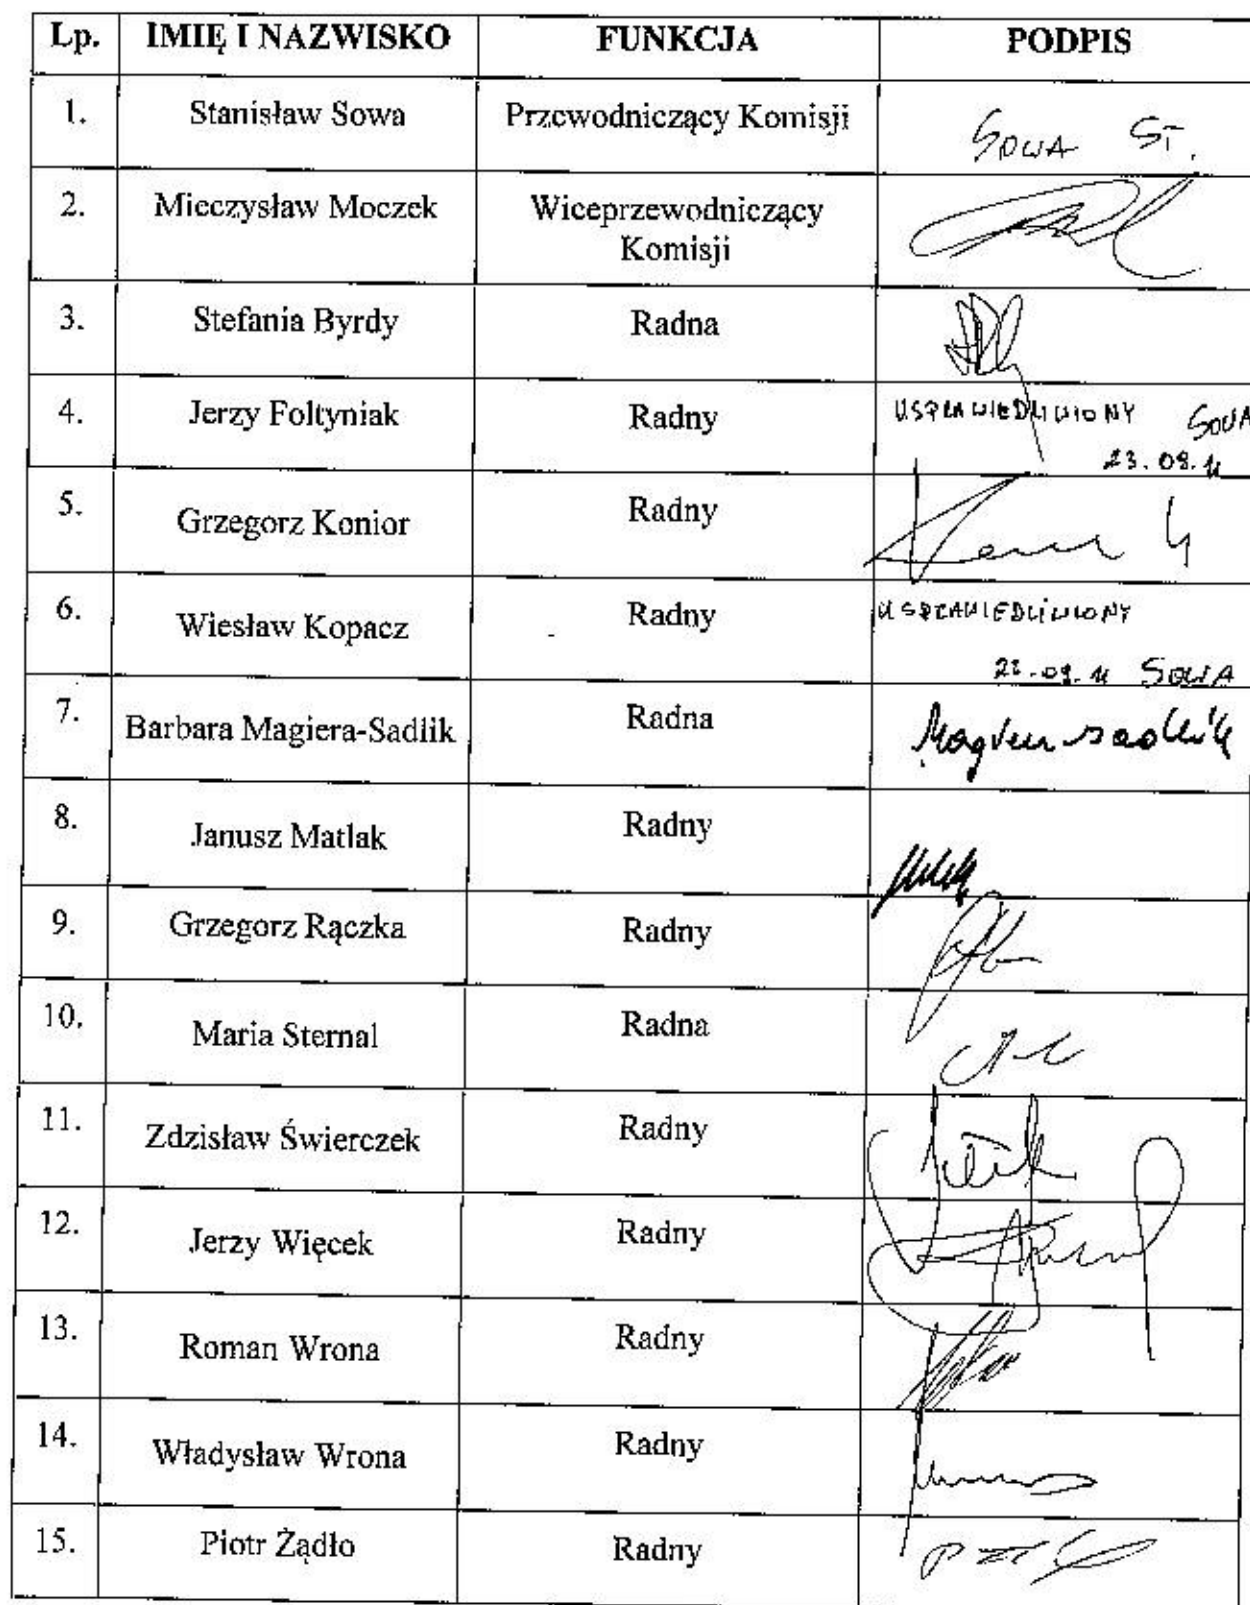 Lp. IMIĘ I NAZWISKO FUNKCJA PODPIS
1. Stanisław Sowa Przewodniczący Komisji SOWA ST.
2. Mieczysław Moczek Wiceprzewodniczący
Komisji
3. Stefania Byrdy Radna
4. Jerzy Foltyniak Radny USPRAWIEDLIWIONY SOWA
23.08.11
5. Grzegorz Konior Radny
6. Wiesław Kopacz Radny USPRAWIEDLIWIONY
SOWA
7. Barbara Magiera-Sadlik Radna Magiera-Sadlik
8. Janusz Matlak Radny
9. Grzegorz Rączka Radny
10. Maria Sternal Radna
11. Zdzisław Świerczek Radny
12. Jerzy Więcek Radny
13. Roman Wrona Radny
14. Władysław Wrona Radny
15. Piotr Żądło Radny